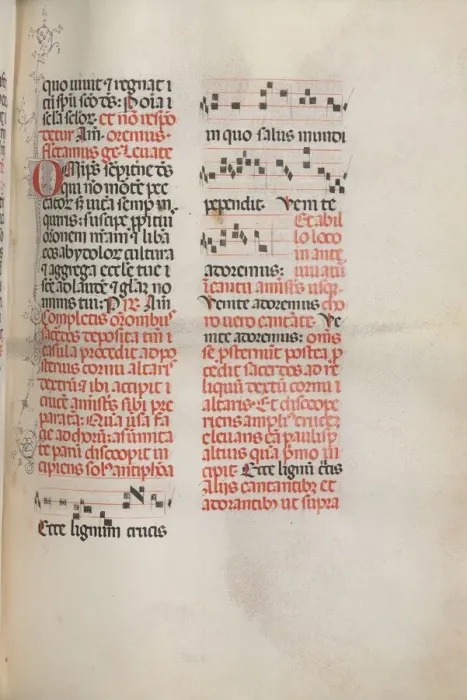 quo uiuit ⁊ regnat i
tũ spũ scõ ds: P oĩa i
sc̃la sc̃lor. et nõ respõ
detur Am̃. oremus.
flectamus ge. Leuate
Omps sẽpitne ds
qui nõ mortẽ pec
cator sʒ uitã semp in
quiris: suscipe ppitiu
oronem nr̃am ⁊ libã
eos ab ydolor cultura
⁊ aggrega eccl̃e tue i
scẽ ad laudẽ ⁊ glãz no
minis tui: P Am̃
Completis orõnibus
sacẽdos deposita tm̃ i
casula pcedit ad po
sterius cornu altaris
dextrũ ⁊ ibi accipit i
crucẽ amistis sibi pre
paratã: Quã uersa fa
tie ad chorũ: a sũmita
te parũ discoopit in
cipiens solʼ antiphõa
Ecce lignum crucis
in quo salus mundi
pependit. Venite
Et ab il
lo loco
in ante
adoremus: iuuatur
ĩ cantu amistis usqʒ.
Venite adoremus cho
ro uero cantãte. Ve
nite adoremus: oms
se psternũt postea p
cedit sacerdos ad re
liquũ dextrũ cornu i
altaris. Et discoope
riens ampliʼ crucẽ ⁊
eleuans eã paulisp
altius quã pmo in
cipit Ecce lignũ crĩs
Alijs cantantibʒ et
adorantibʒ ut supra